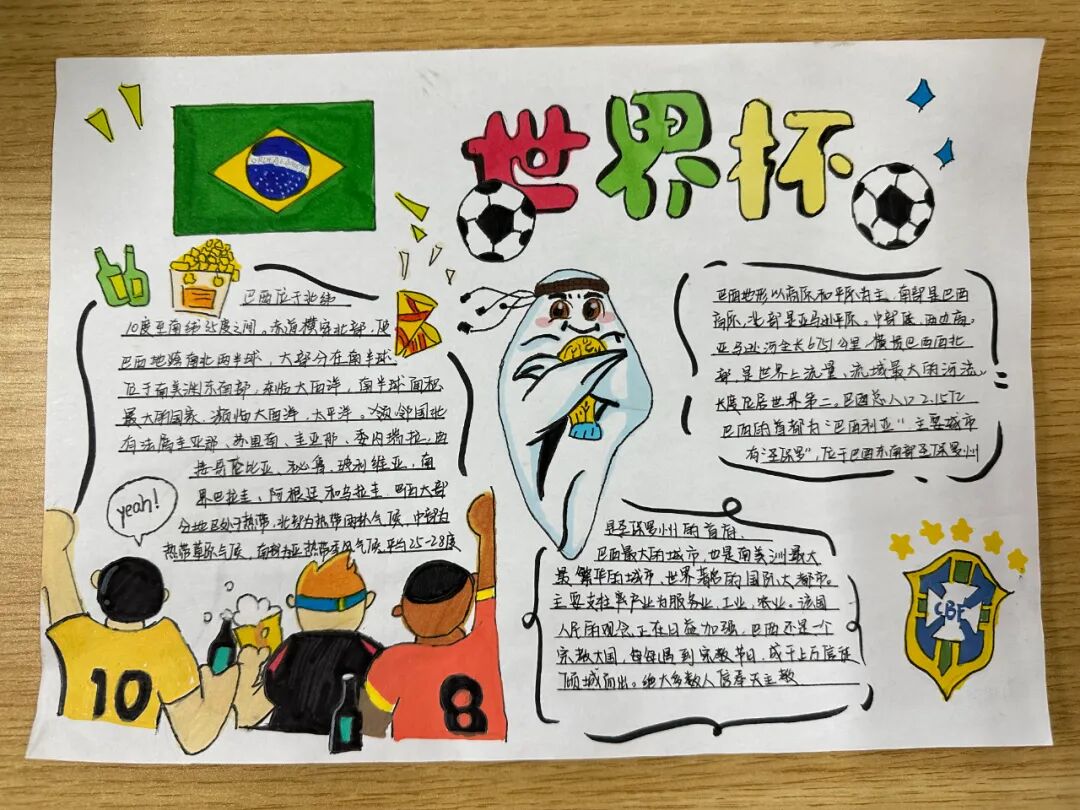 世界杯
巴西位于北纬
10度至南纬35度之间。赤道横穿北部，使
巴西地跨南北两半球，大部分在南半球
位于南美洲东南部，东临大西洋，南半球面积
最大的国家，濒临大西洋，太平洋。领邻国北
有法属圭亚那、苏里南、圭亚那、委内瑞拉。西
接哥伦比亚、秘鲁，玻利维亚，南
界巴拉圭、阿根廷和乌拉圭。巴西大部
分地区处于热带，北部为热带雨林气候，中部为
热带草原气候，南部为亚热带季风气候平均25-28度
yeah!
10
8
巴西地形以高原和平原为主。南部是巴西
高原，北部是亚马逊平原。中部低，西边高，
亚马逊河全长6751公里，横贯巴西西北
部，是世界上流量、流域最大的河流，
长度位居世界第二。巴西总人口2.15亿
巴西的首都为"巴西利亚"主要城市
有"圣保罗"，位于巴西东南部圣保罗州
是圣保罗州的首府.
巴西最大的城市，也是南美洲最大
最繁华的城市，世界著名的国际大都市。
主要支柱产业为服务业，工业，农业。该国
人民的观念正在日益加强，巴西还是一个
宗教大国，每每遇到宗教节日，成千上万信徒
倾城而出。绝大多数人信奉天主教
CBF